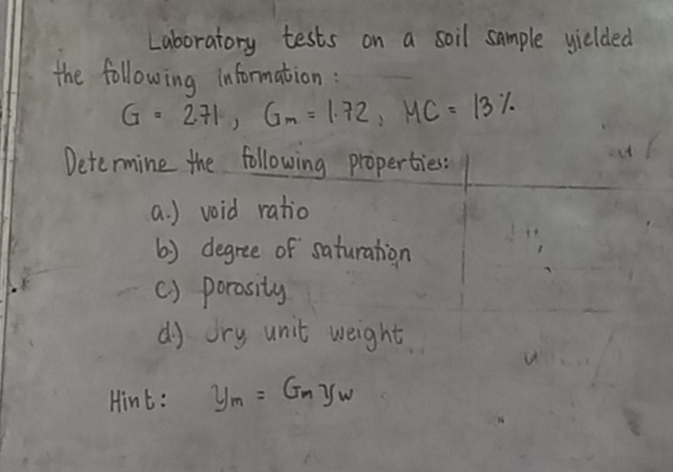 Laboratory tests on a soil sample yielded
the following information :
G = 2.71, Gm = 1.72, MC = 13%
Determine the following properties:
a.) void ratio
b) degree of saturation
c) porosity
d.) dry unit weight
Hint: γm = Gm γw